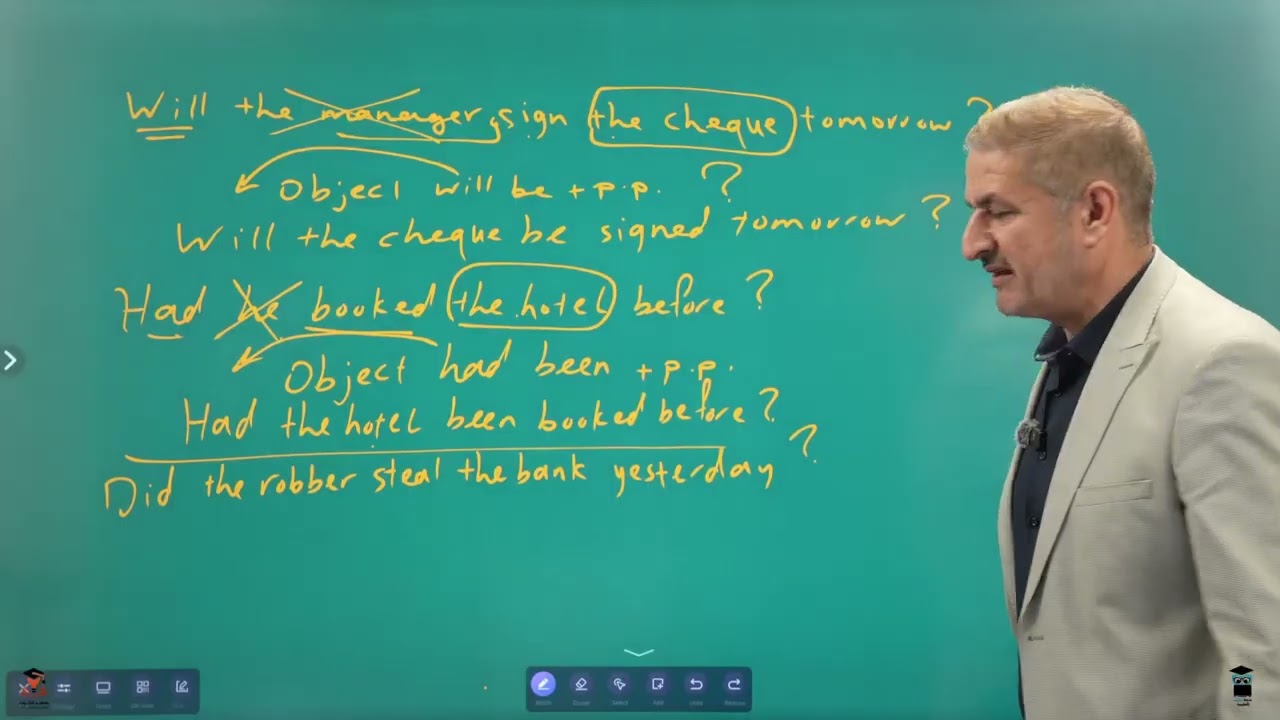 Will the manager sign the cheque tomorrow ?
Object will be + p.p. ?
Will the cheque be signed tomorrow ?
Had he booked the hotel before ?
Object had been + p.p.
Had the hotel been booked before ?
Did the robber steal the bank yesterday ?
Select
Add
Undo